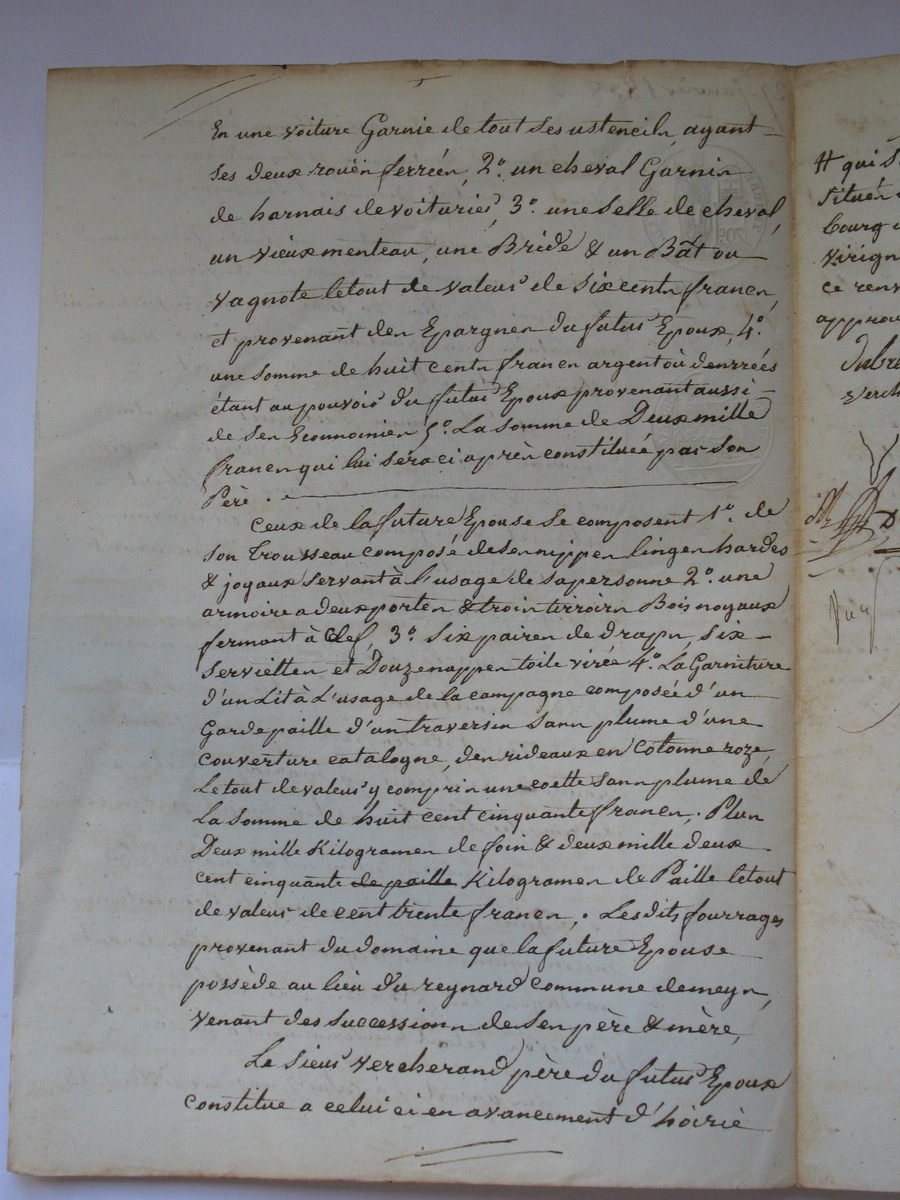 En une voiture Garnie de tout ses ustencils, ayant
ses deux rouës ferrées, 2.° un cheval Garnis
de harnais de voiturier, 3.° une selle de cheval,
un vieux menteau, une Bride & un Bât ou
vagnote le tout de valeur de six cents francs,
et provenant des Epargnes du futur Epoux, 4.°
une somme de huit cents francs argent où denrrées
étant au pouvoir du futur Epoux provenant aussi
de ses Economies 5.° La somme de Deux mille
francs qui lui sera ci après constituée par son
Père.
Ceux de la future Epouse se composent 1.° de
son trousseau composé de ses nippes linges hardes
& joyaux servant à l'usage de sa personne 2.° une
armoire a deux portes & trois tirroirs Bois noyaux
fermant à Clef, 3.° six paires de draps, six
serviettes et Douze nappes toile virée 4.° La Garniture
d'un Lit à L'usage de la campagne composée d'un
Garde paille d'un traversin sans plume d'une
couverture catalogne, des rideaux en Cotonne roze,
Le tout de valeur y compris une coette sans plume de
La somme de huit cent cinquante francs. Plus
Deux mille Kilogrames de foin & deux mille deux
cent cinquante de paille Kilogrames de Paille le tout
de valeur de cent trente francs. Les dits fourrages
provenant du domaine que la future Epouse
possède au lieu du reynard commune de meys,
venant des successions de ses père & mère,
Le sieur Vercherand père du futur Epoux
constitue a celui ci en avancement d'hoirie
# qui
situés
bourg
virign
ce renv
approu